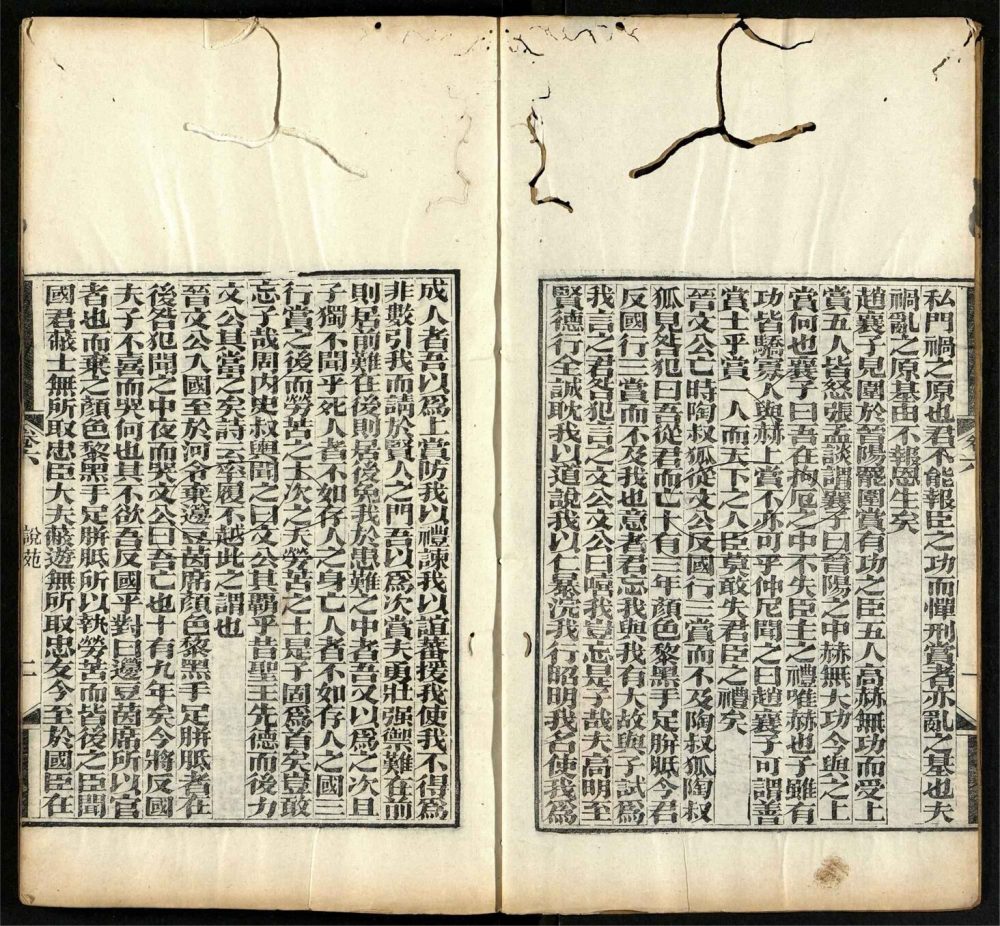 私門禍之原也君不能報臣之功而憚刑賞者亦亂之基也夫
禍亂之原基由不報恩生矣
趙襄子見圍於晉陽罷圍賞有功之臣五人高赫無功而受上
賞五人皆怒張孟談謂襄子曰晉陽之中赫無大功今與之上
賞何也襄子曰吾在拘厄之中不失臣主之禮唯赫也子雖有
功皆驕寡人與赫上賞不亦可乎仲尼聞之曰趙襄子可謂善
賞士乎賞一人而天下之人臣莫敢失君臣之禮矣
晉文公亡時陶叔狐從文公反國行三賞而不及陶叔狐陶叔
狐見咎犯曰吾從君而亡十有三年顏色黎黑手足胼胝今君
反國行三賞而不及我也意者君忘我與我有大故與子試為
我言之君咎犯言之文公文公曰嘻我豈忘是子哉夫高明至
賢德行全誠耽我以道說我以仁暴浣我行昭明我名使我為
成人者吾以為上賞防我以禮諫我以誼蕃援我使我不得為
非數引我而請於賢人之門吾以為次賞夫勇壯强禦難在前
則居前難在後則居後免我於患難之中者吾又以為之次且
子獨不聞乎死人者不如存人之身亡人者不如存人之國三
行賞之後而勞苦之士次之夫勞苦之士是子固為首矣豈敢
忘子哉周內史叔輿聞之曰文公其霸乎昔聖王先德而後力
文公其當之矣詩云率履不越此之謂也
晉文公入國至於河令棄邊豆茵席顏色黎黑手足胼胝者在
後咎犯聞之中夜而哭文公曰吾亡也十有九年矣今將反國
夫子不喜而哭何也其不欲吾反國乎對曰邊豆茵席所以官
者也而棄之顏色黎黑手足胼胝所以執勞苦而皆後之臣聞
國君蔽士無所取忠臣大夫蔽遊無所取忠友今至於國臣在
卷六
說苑
二